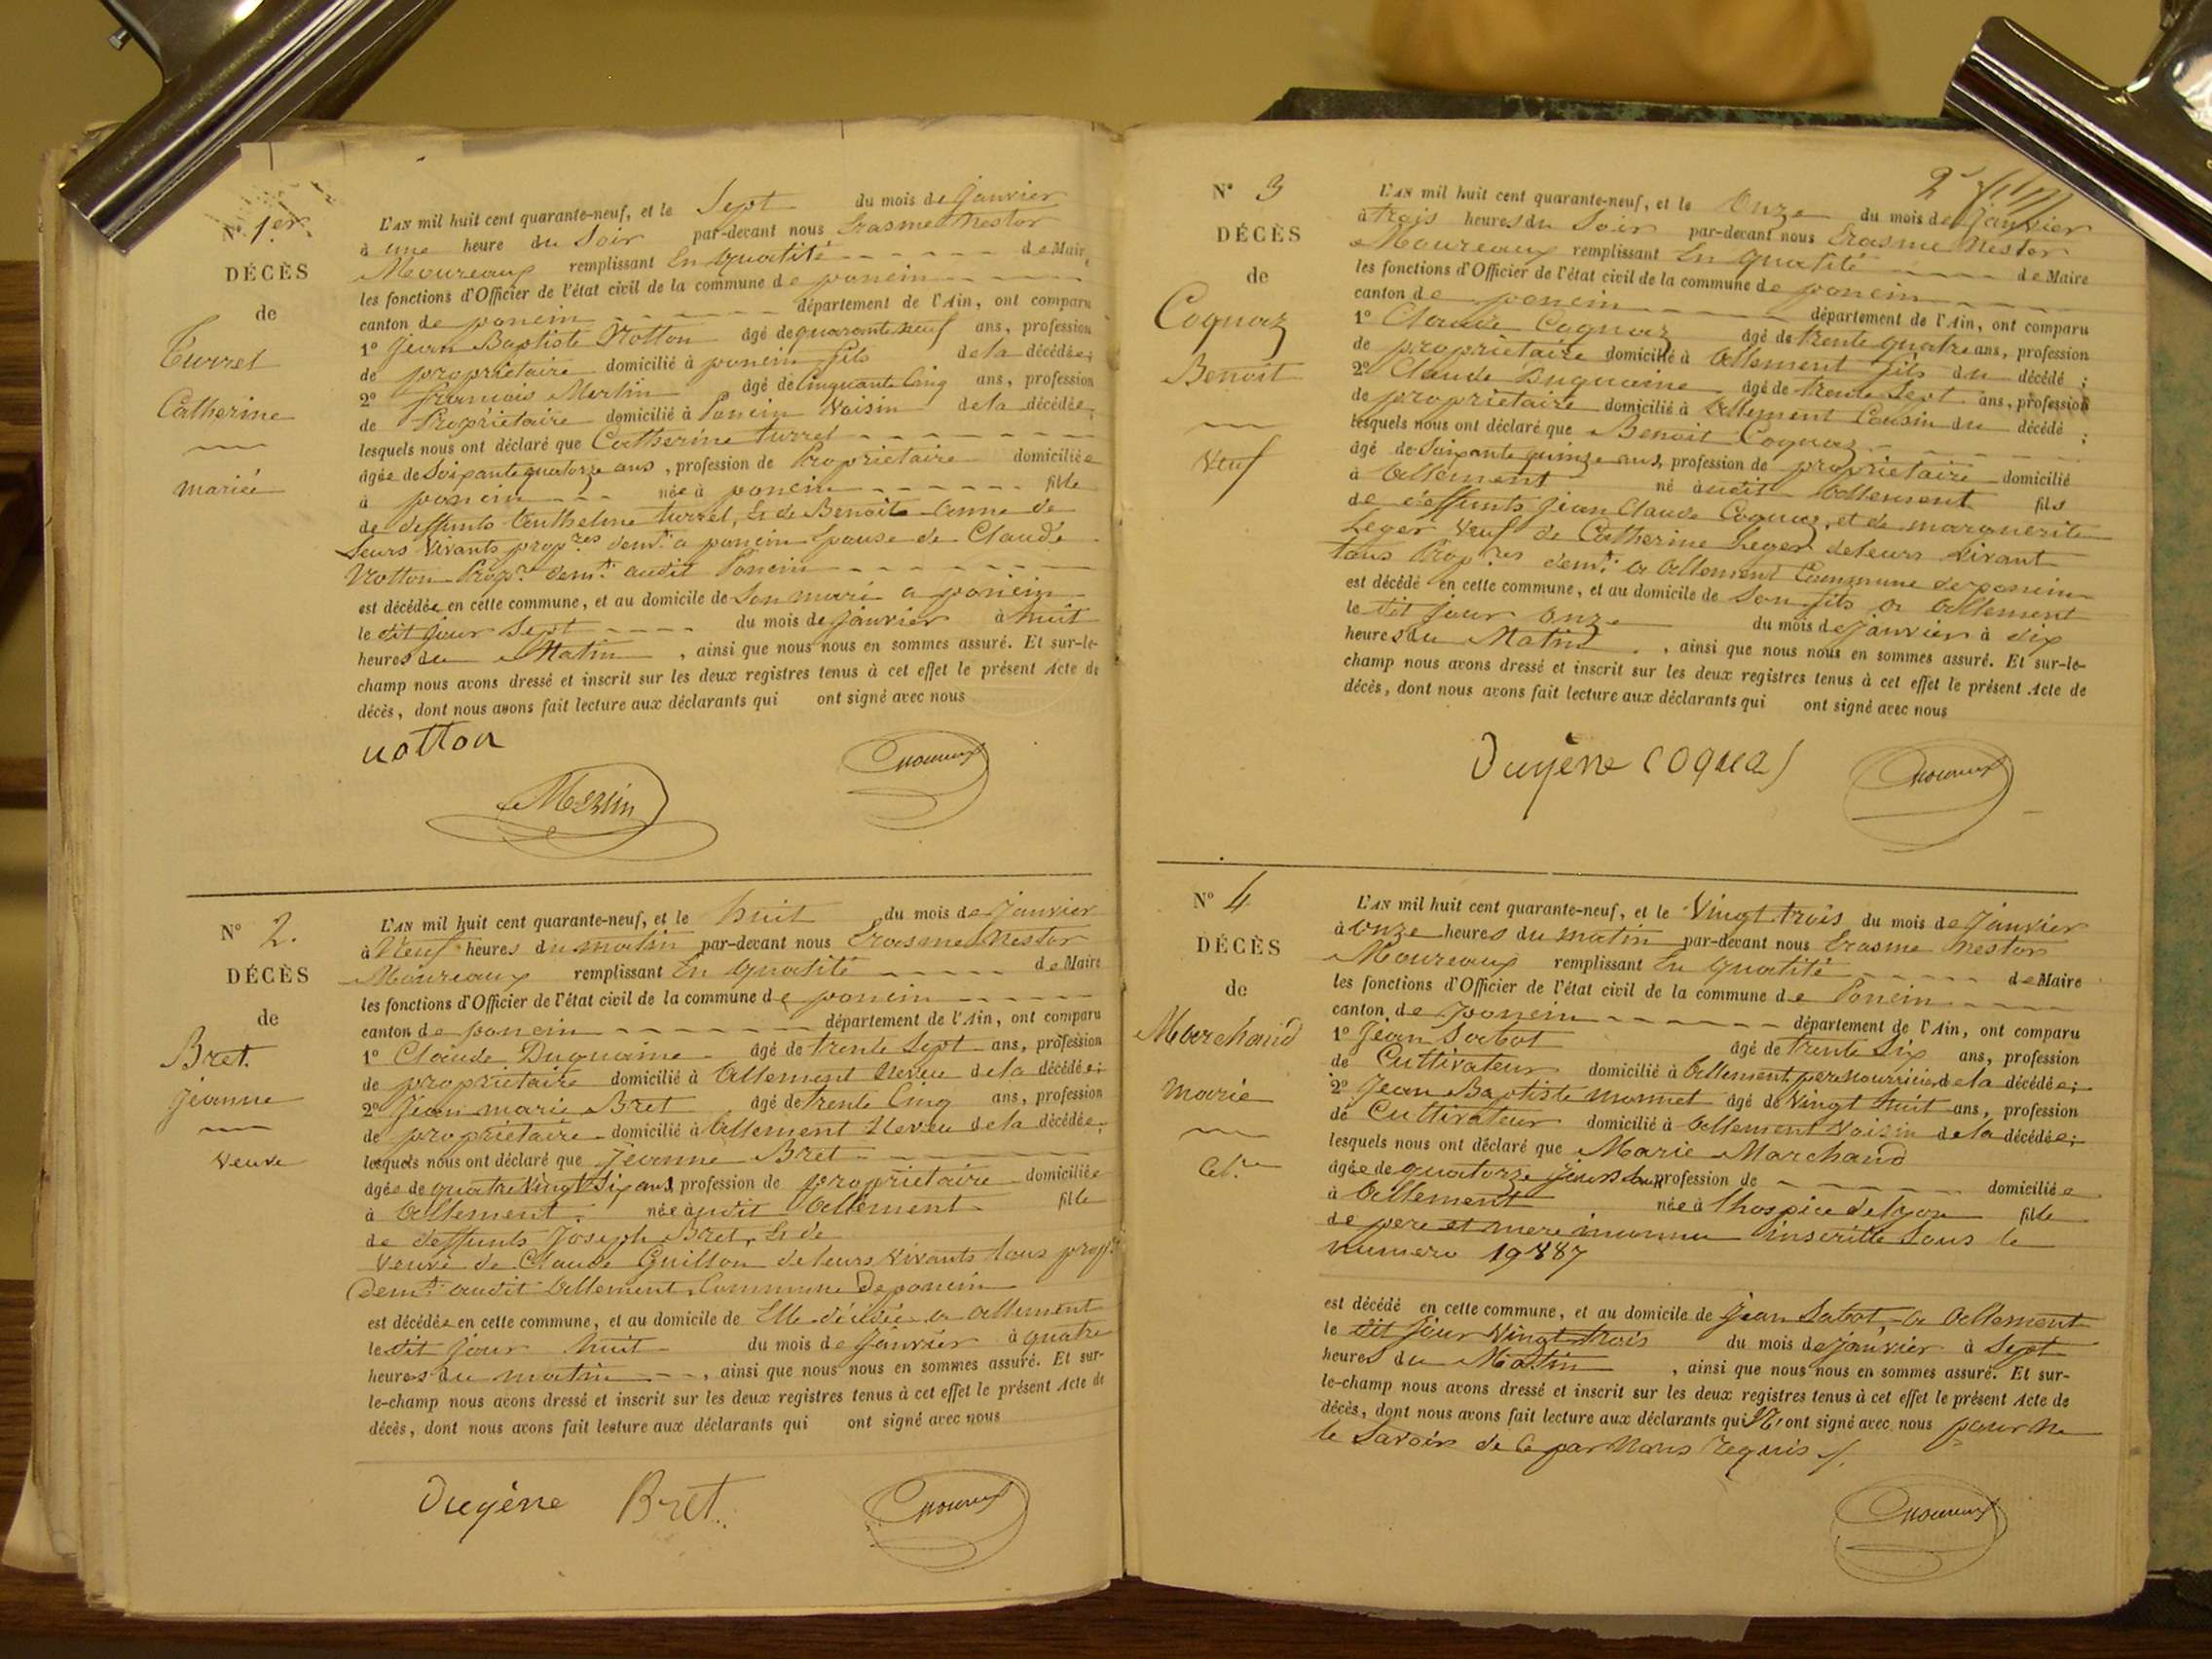 N° 1er
DÉCÈS
de
Turrel
Catherine
mariée
L'AN mil huit cent quarante-neuf, et le Sept du mois de janvier
à une heure du Soir par-devant nous Erasme Nestor
Moureaux remplissant En qualité de Maire
les fonctions d'Officier de l'état civil de la commune de poncin
canton de poncin département de l'Ain, ont comparu
1° Jean Baptiste Notton âgé de quarante neuf ans, profession
de propriétaire domicilié à poncin fils de la décédée;
2° françois Merlin âgé de Cinquante Cinq ans, profession
de Propriétaire domicilié à Poncin Voisin de la décédée;
lesquels nous ont déclaré que Catherine turrel
âgée de Soixante quatorze ans, profession de Propriétaire domiciliée
à poncin née à poncin fille
de deffunts turrel, Et de Benoite Canne de
leurs Vivants prop.res dem.t a poncin Epouse de Claude
Notton Prop.re dem.t audit Poncin
est décédée en cette commune, et au domicile de Son mari a poncin
le dit jour Sept du mois de janvier à huit
heures du Matin, ainsi que nous nous en sommes assuré. Et sur-le-
champ nous avons dressé et inscrit sur les deux registres tenus à cet effet le présent Acte de
décès, dont nous avons fait lecture aux déclarants qui ont signé avec nous
notton
Merlin
Moureaux
N° 2.
DÉCÈS
de
Bret.
jeanne
Veuve
L'AN mil huit cent quarante-neuf, et le huit du mois de Janvier
à Neuf heures du matin par-devant nous Erasme Nestor
Moureaux remplissant En qualité de Maire
les fonctions d'Officier de l'état civil de la commune de poncin
canton de poncin département de l'Ain, ont comparu
1° Claude Duguaine âgé de trente Sept ans, profession
de propriétaire domicilié à Allement Neveu de la décédée;
2° Jean marie Bret âgé de trente Cinq ans, profession
de propriétaire domicilié à Allement Neveu de la décédée;
lesquels nous ont déclaré que Jeanne Bret
âgée de quatre Vingt Six ans, profession de propriétaire domiciliée
à Allement née audit Allement fille
de deffunts Joseph Bret, Et de
Veuve de Claude Guillon de leurs Vivants tous prop.res
dem.t audit Allement Commune De poncin
est décédée en cette commune, et au domicile de Elle décédée a Allement
le dit jour huit du mois de janvier à quatre
heures du matin, ainsi que nous nous en sommes assuré. Et sur-
le-champ nous avons dressé et inscrit sur les deux registres tenus à cet effet le présent Acte de
décès, dont nous avons fait lecture aux déclarants qui ont signé avec nous
Dugène Bret.
Moureaux
2e
N° 3
DÉCÈS
de
Coquaz
Benoit
Veuf
L'AN mil huit cent quarante-neuf, et le Onze du mois de janvier
à trois heures du Soir par-devant nous Erasme Nestor
Moureaux remplissant En qualité de Maire
les fonctions d'Officier de l'état civil de la commune de poncin
canton de poncin département de l'Ain, ont comparu
1° Claude Coquaz âgé de trente quatre ans, profession
de propriétaire domicilié à Allement fils du décédé;
2° Claude Duguaine âgé de trente Sept ans, profession
de propriétaire domicilié à Allement Cousin du décédé;
lesquels nous ont déclaré que Benoit Coquaz
âgé de Soixante quinze ans, profession de propriétaire domicilié
à Allement né audit Allement fils
de deffunts Jean Claude Coquaz, et de marguerite
Leger Veuf de Catherine Leger de leurs Vivant
tous Prop.res dem.t a Allement Commune de poncin
est décédé en cette commune, et au domicile de Son fils a Allement
le dit jour Onze du mois de janvier à dix
heures du Matin, ainsi que nous nous en sommes assuré. Et sur-le-
champ nous avons dressé et inscrit sur les deux registres tenus à cet effet le présent Acte de
décès, dont nous avons fait lecture aux déclarants qui ont signé avec nous
Dugène Coquaz
Moureaux
N° 4
DÉCÈS
de
Marchand
Marie
Cel.re
L'AN mil huit cent quarante-neuf, et le Vingt trois du mois de janvier
à onze heures du matin par-devant nous Erasme Nestor
Moureaux remplissant En qualité de Maire
les fonctions d'Officier de l'état civil de la commune de Poncin
canton de poncin département de l'Ain, ont comparu
1° Jean Sabot âgé de trente Six ans, profession
de Cultivateur domicilié à Allement pere nourricier de la décédée;
2° Jean Baptiste monnet âgé de Vingt huit ans, profession
de Cultivateur domicilié à Allement Voisin de la décédée;
lesquels nous ont déclaré que Marie Marchand
âgée de quatorze jours profession de domiciliée
à Allement née à lhospice de lyon fille
de pere et mere inconnu inscritte Sous le
numero 19887
est décédé en cette commune, et au domicile de Jean Sabot, a Allement
le dit jour Vingt trois du mois de janvier à Sept
heures du Matin, ainsi que nous nous en sommes assuré. Et sur-
le-champ nous avons dressé et inscrit sur les deux registres tenus à cet effet le présent Acte de
décès, dont nous avons fait lecture aux déclarants qui N'ont signé avec nous pour ne
le Savoir de Ce par Nous requis
Moureaux